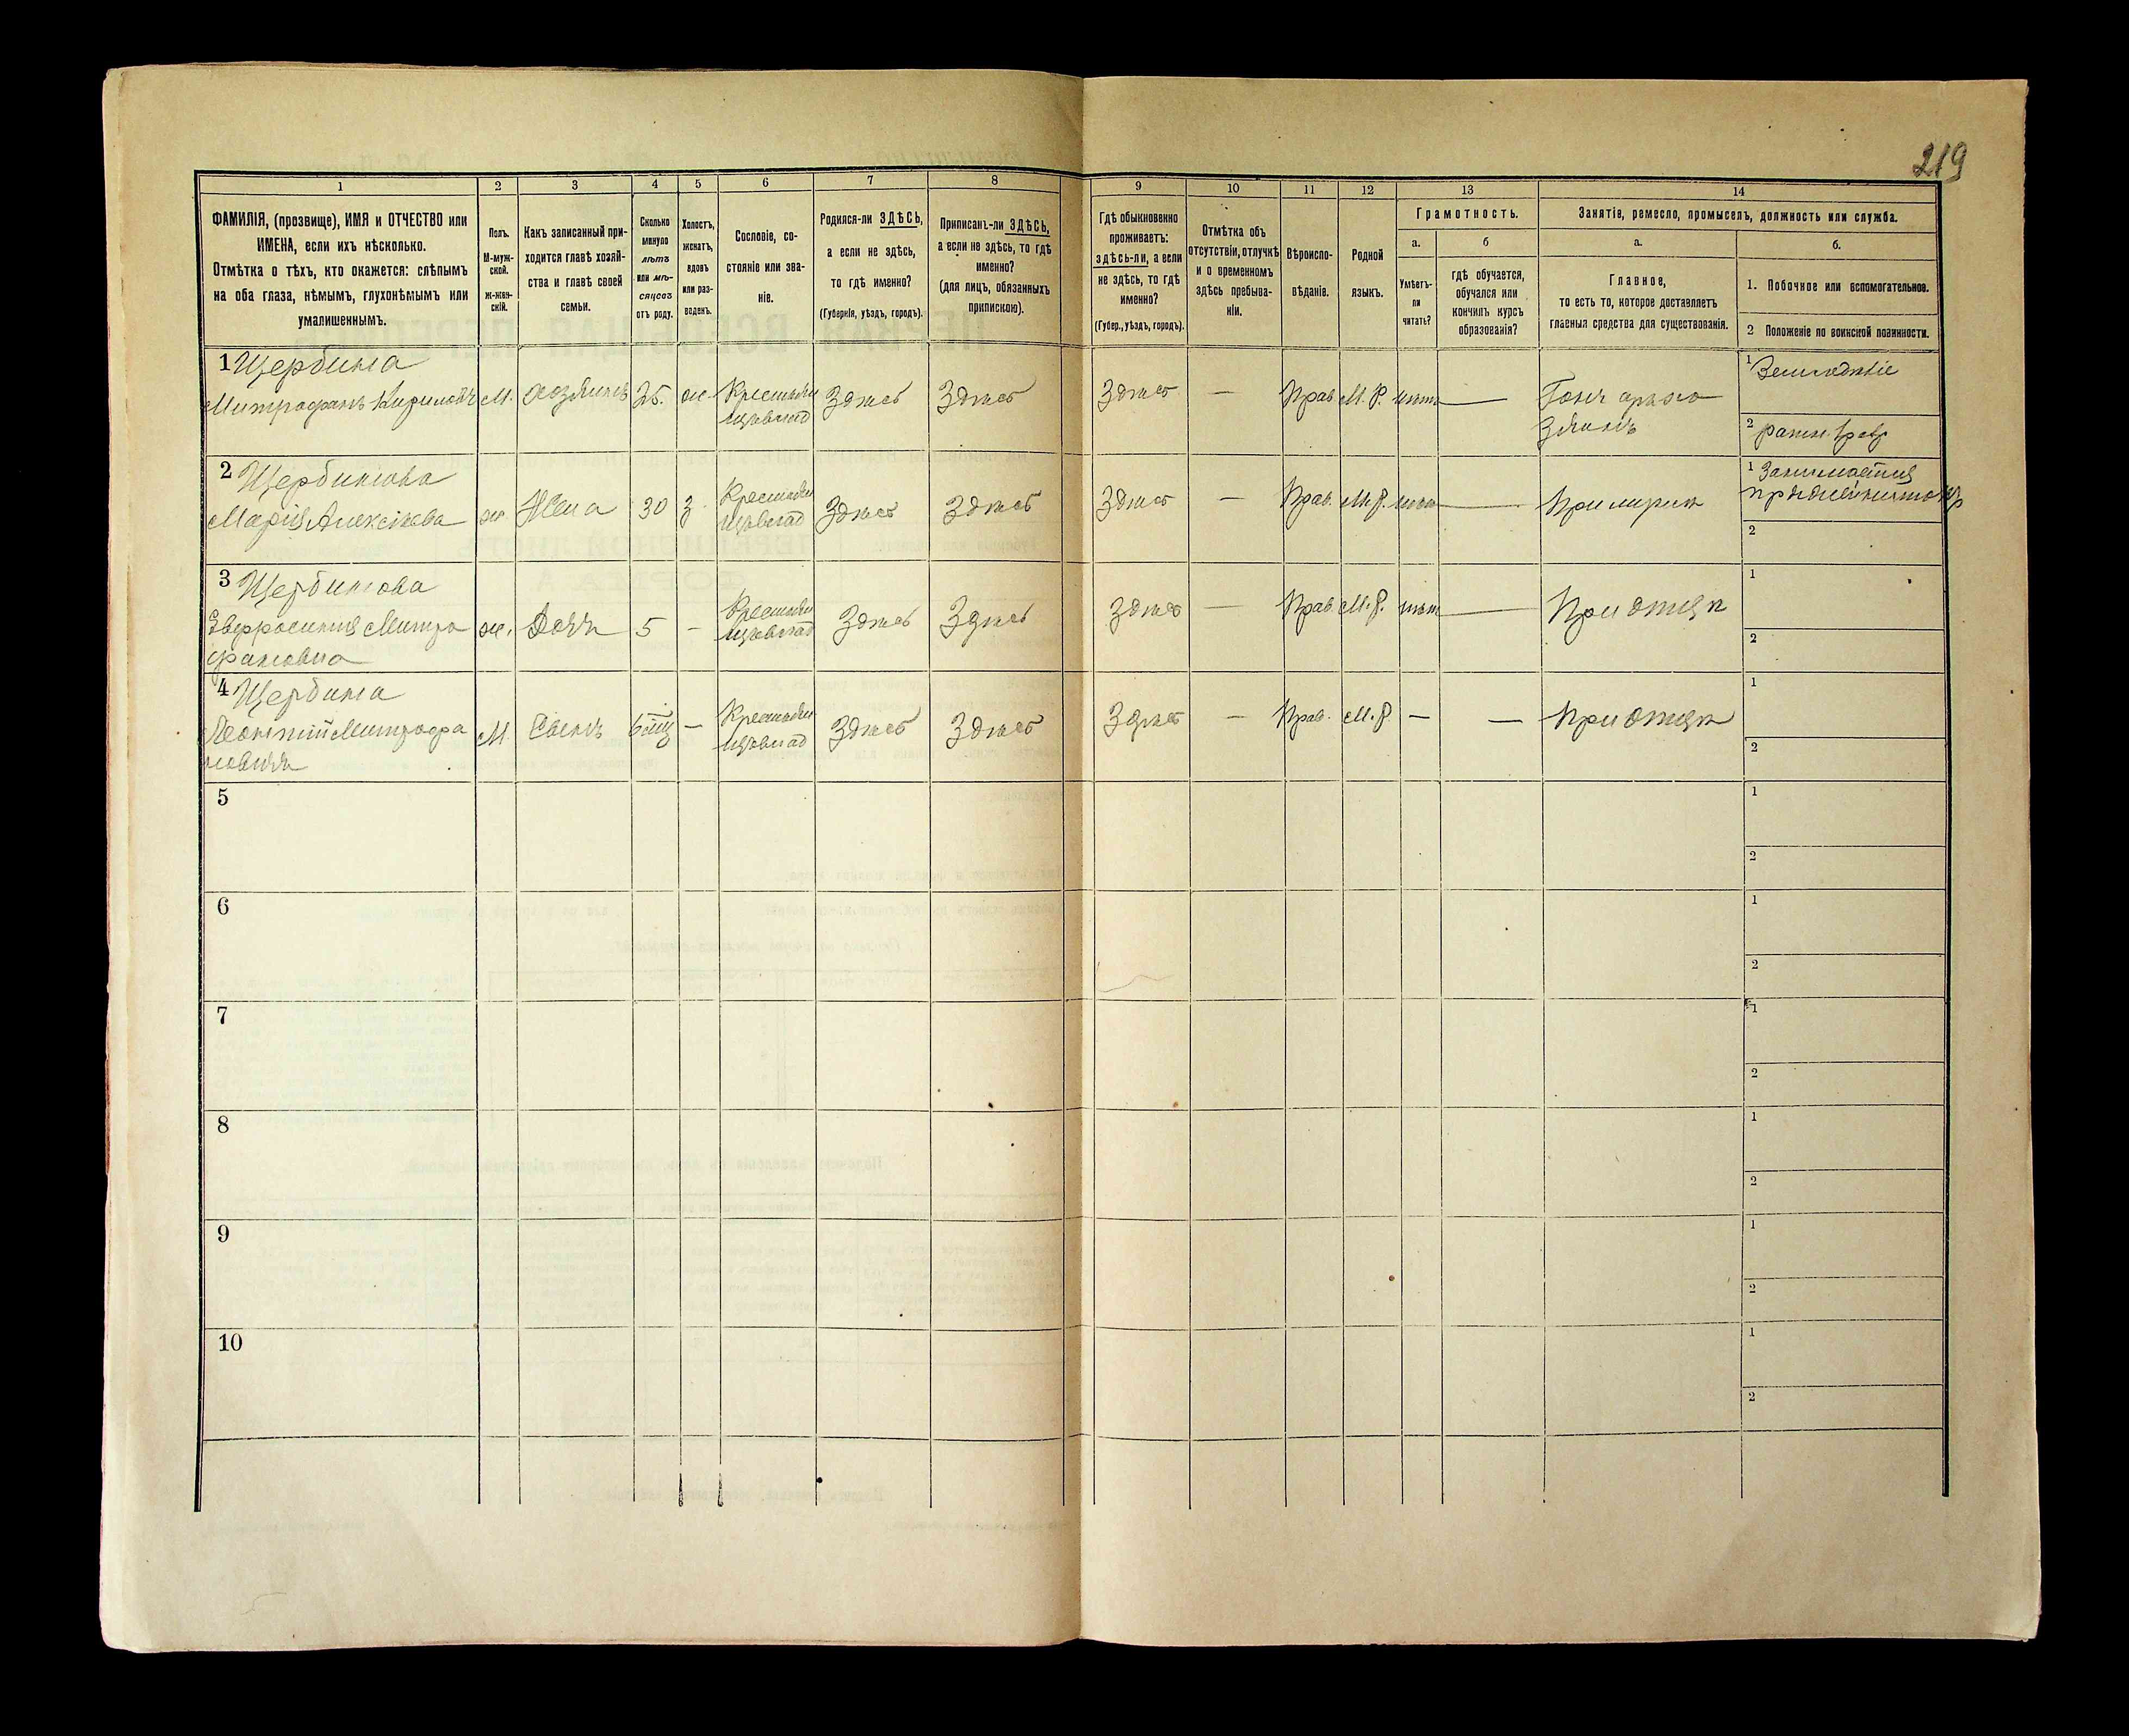 219
1 2 3 4 5 6 7 8 9 10 11 12 13 14
ФАМИЛІЯ, (прозвище), ИМЯ и ОТЧЕСТВО или
ИМЕНА, если ихъ нѣсколько.
Отмѣтка о тѣхъ, кто окажется: слѣпымъ
на оба глаза, нѣмымъ, глухонѣмымъ или
умалишеннымъ.
Полъ.
М-муж-
ской.
ж-жен-
скій.
Какъ записанный при-
ходится главѣ хозяй-
ства и главѣ своей
семьи.
Сколько
минуло
лѣтъ
или мѣ-
сяцевъ
отъ роду.
Холостъ,
женатъ,
вдовъ
или раз-
веденъ.
Сословіе, со-
стояніе или зва-
ніе.
Родился-ли ЗДѢСЬ,
а если не здѣсь,
то гдѣ именно?
(Губернія, уѣздъ, городъ).
Приписанъ-ли ЗДѢСЬ,
а если не здѣсь, то гдѣ
именно?
(для лицъ, обязанныхъ
припискою).
Гдѣ обыкновенно
проживаетъ:
здѣсь-ли, а если
не здѣсь, то гдѣ
именно?
(Губер., уѣздъ, городъ).
Отмѣтка объ
отсутствіи, отлучкѣ
и о временномъ
здѣсь пребыва-
ніи.
Вѣроиспо-
вѣданіе.
Родной
языкъ.
Грамотность.
а.
Умѣетъ-
ли
читать?
б
гдѣ обучается,
обучался или
кончилъ курсъ
образованія?
Занятіе, ремесло, промыселъ, должность или служба.
а.
Главное,
то есть то, которое доставляетъ
главныя средства для существованія.
б.
1. Побочное или вспомогательное.
2 Положеніе по воинской повинности.
1 Щербина
Митрофанъ Кириловъ
М.
хозяинъ
25.
ж.
Крестьян
Здѣсь
Здѣсь
Здѣсь
—
Прав
М. Р.
нѣтъ
—
Гончаръ хо
зяинъ
1 Земледѣліе
2
2 Щербинова
Марія Алексѣева
ж
Жена
30
З
Крестьян
Здѣсь
Здѣсь
Здѣсь
—
Прав.
М. Р.
нѣт
—
При мужѣ
1 Занимается
2
3 Щербинова
Евфросинія Митро
фановна
ж.
Дочь
5
—
Крестьян
Здѣсь
Здѣсь
Здѣсь
—
Прав
М. Р.
нѣт
—
При отцѣ
1
2
4 Щербина
Леонтій Митрофа
новичъ
М.
Сынъ
6 мц
—
Крестьян
Здѣсь
Здѣсь
Здѣсь
—
Прав.
М. Р.
—
—
При отцѣ
1
2
5
1
2
6
1
2
7
1
2
8
1
2
9
1
2
10
1
2